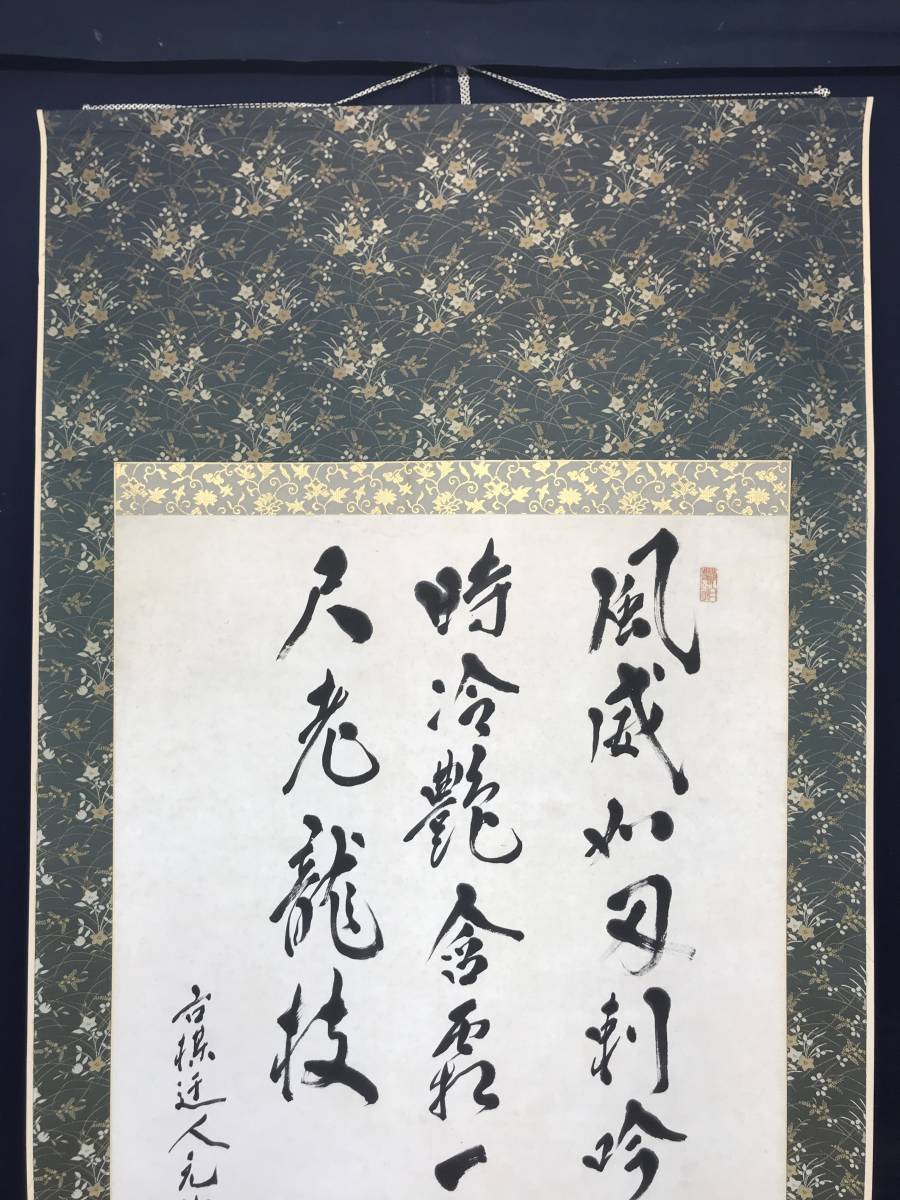 風威如刃刺吟
時冷艶含霜一
尺老龍枝
迂人元